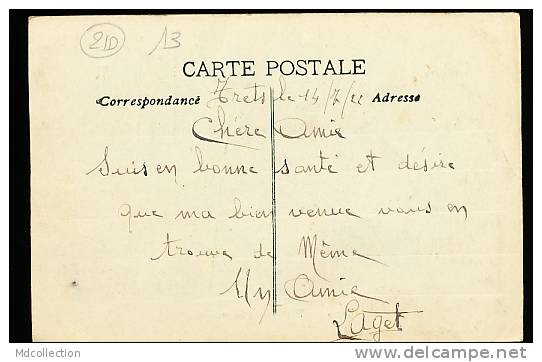 21D 13
CARTE POSTALE
Correspondance Trets le 14/7/22 Adresse
Chère Amie
Suis en bonne santé et désire
que ma bien venue vous en
trouve de Même
Un Amie
Laget
© Mdcollection
delcampe.net